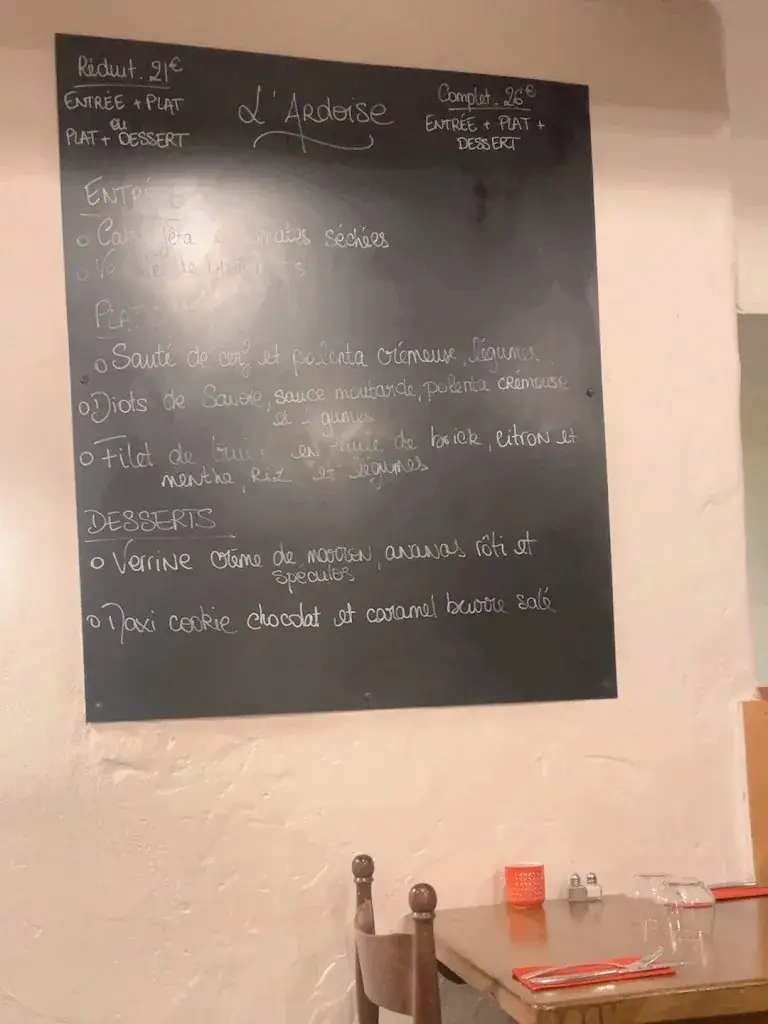 Réduit. 21€
ENTRÉE + PLAT
ou
PLAT + DESSERT
L'Ardoise
Complet. 26€
ENTRÉE + PLAT +
DESSERT
séchées
Sauté de et polenta crémeuse, légumes
Diots de Savoie, sauce moutarde, polenta crémeuse
et légumes
Filet de en de brick, citron et
menthe, Riz et légumes
DESSERTS
Verrine crème de marron, ananas rôti et
spéculos
Maxi cookie chocolat et caramel beurre salé